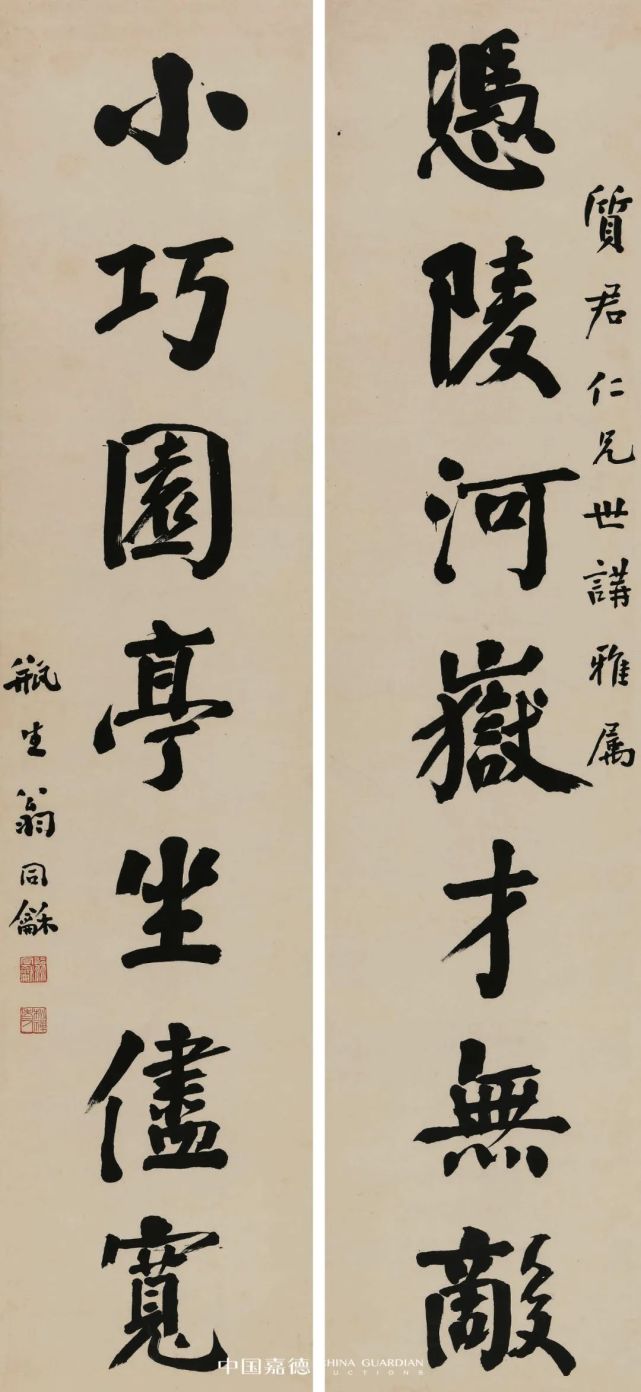 質君仁兄世講雅属
憑陵河嶽才無敵
小巧園亭坐儘寬
瓶生翁同龢
中国嘉德 CHINA GUARDIAN
AUCTIONS